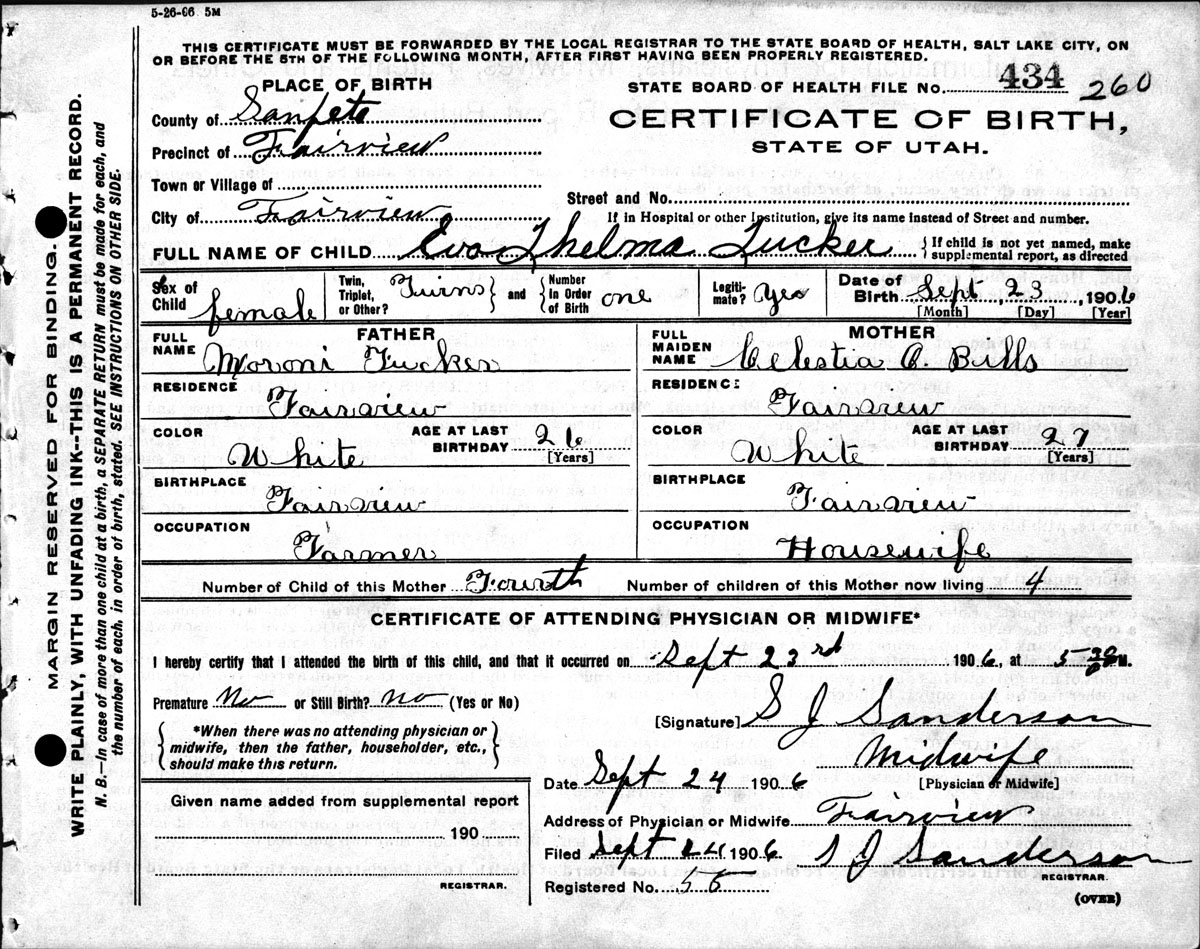 5-26-06 5M
THIS CERTIFICATE MUST BE FORWARDED BY THE LOCAL REGISTRAR TO THE STATE BOARD OF HEALTH, SALT LAKE CITY, ON
OR BEFORE THE 5TH OF THE FOLLOWING MONTH, AFTER FIRST HAVING BEEN PROPERLY REGISTERED.
PLACE OF BIRTH
STATE BOARD OF HEALTH FILE No. 434 260
County of Sanpete
CERTIFICATE OF BIRTH,
Precinct of Fairview
STATE OF UTAH.
Town or Village of
Street and No.
City of Fairview
If in Hospital or other Institution, give its name instead of Street and number.
FULL NAME OF CHILD Eva Thelma Tucker {If child is not yet named, make supplemental report, as directed
Sex of Child female Twin, Triplet, or Other? Twins} and {Number in Order of Birth one Legitimate? Yes Date of Birth Sept, 23, 1906
[Month] [Day] [Year]
FATHER
FULL NAME Moroni Tucker
MOTHER
FULL MAIDEN NAME Celestia A. Bills
RESIDENCE Fairview
RESIDENCE Fairview
COLOR White AGE AT LAST BIRTHDAY 26 [Years]
COLOR White AGE AT LAST BIRTHDAY 27 [Years]
BIRTHPLACE Fairview
BIRTHPLACE Fairview
OCCUPATION Farmer
OCCUPATION Housewife
Number of Child of this Mother Fourth Number of children of this Mother now living 4
CERTIFICATE OF ATTENDING PHYSICIAN OR MIDWIFE*
I hereby certify that I attended the birth of this child, and that it occurred on Sept 23rd 1906, at 5-30 M.
Premature No or Still Birth? no (Yes or No)
[Signature] S J Sanderson
{*When there was no attending physician or
midwife, then the father, householder, etc.,
should make this return.}
Midwife
Date Sept 24 1906 [Physician or Midwife]
Given name added from supplemental report
Address of Physician or Midwife Fairview
190
Filed Sept 24 1906 S J Sanderson
REGISTRAR.
REGISTRAR.
Registered No. 58
(OVER)
MARGIN RESERVED FOR BINDING.
WRITE PLAINLY, WITH UNFADING INK--THIS IS A PERMANENT RECORD.
N. B.--In case of more than one child at a birth, a SEPARATE RETURN must be made for each, and
the number of each, in order of birth, stated. SEE INSTRUCTIONS ON OTHER SIDE.